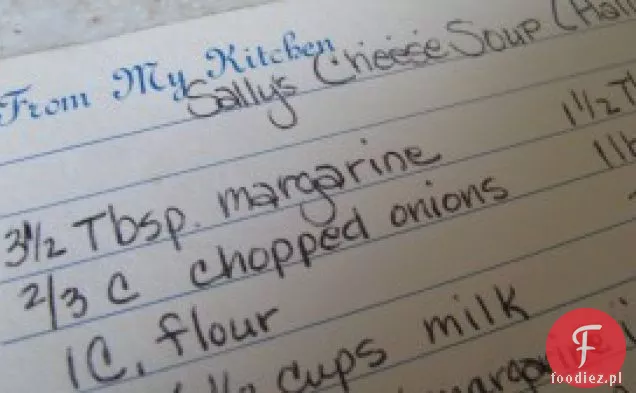 From My Kitchen
Sally's Cheese Soup (Hal
3 1/2 Tbsp. margarine 1 1/2 Tb
2/3 C chopped onions 1 lb
1 C. flour
1/2 cups milk
margarine
F
foodiez.pl